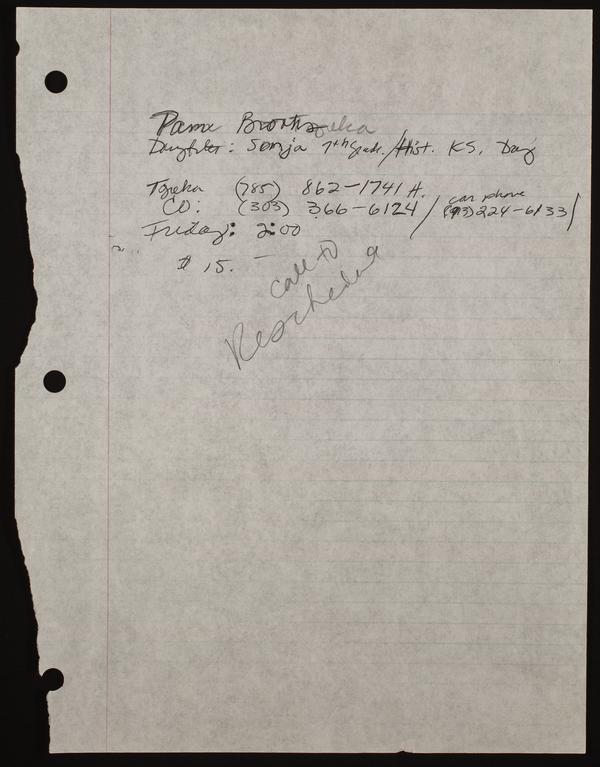 Pame
Daughter: Sonja 7th grade. / Hist. KS. Day
Topeka (785) 862-1741 H.
car phone
CO: (303) 366-6124 / (913) 224-6133 /
Friday: 2:00
$ 15. —
call to
Reschedule